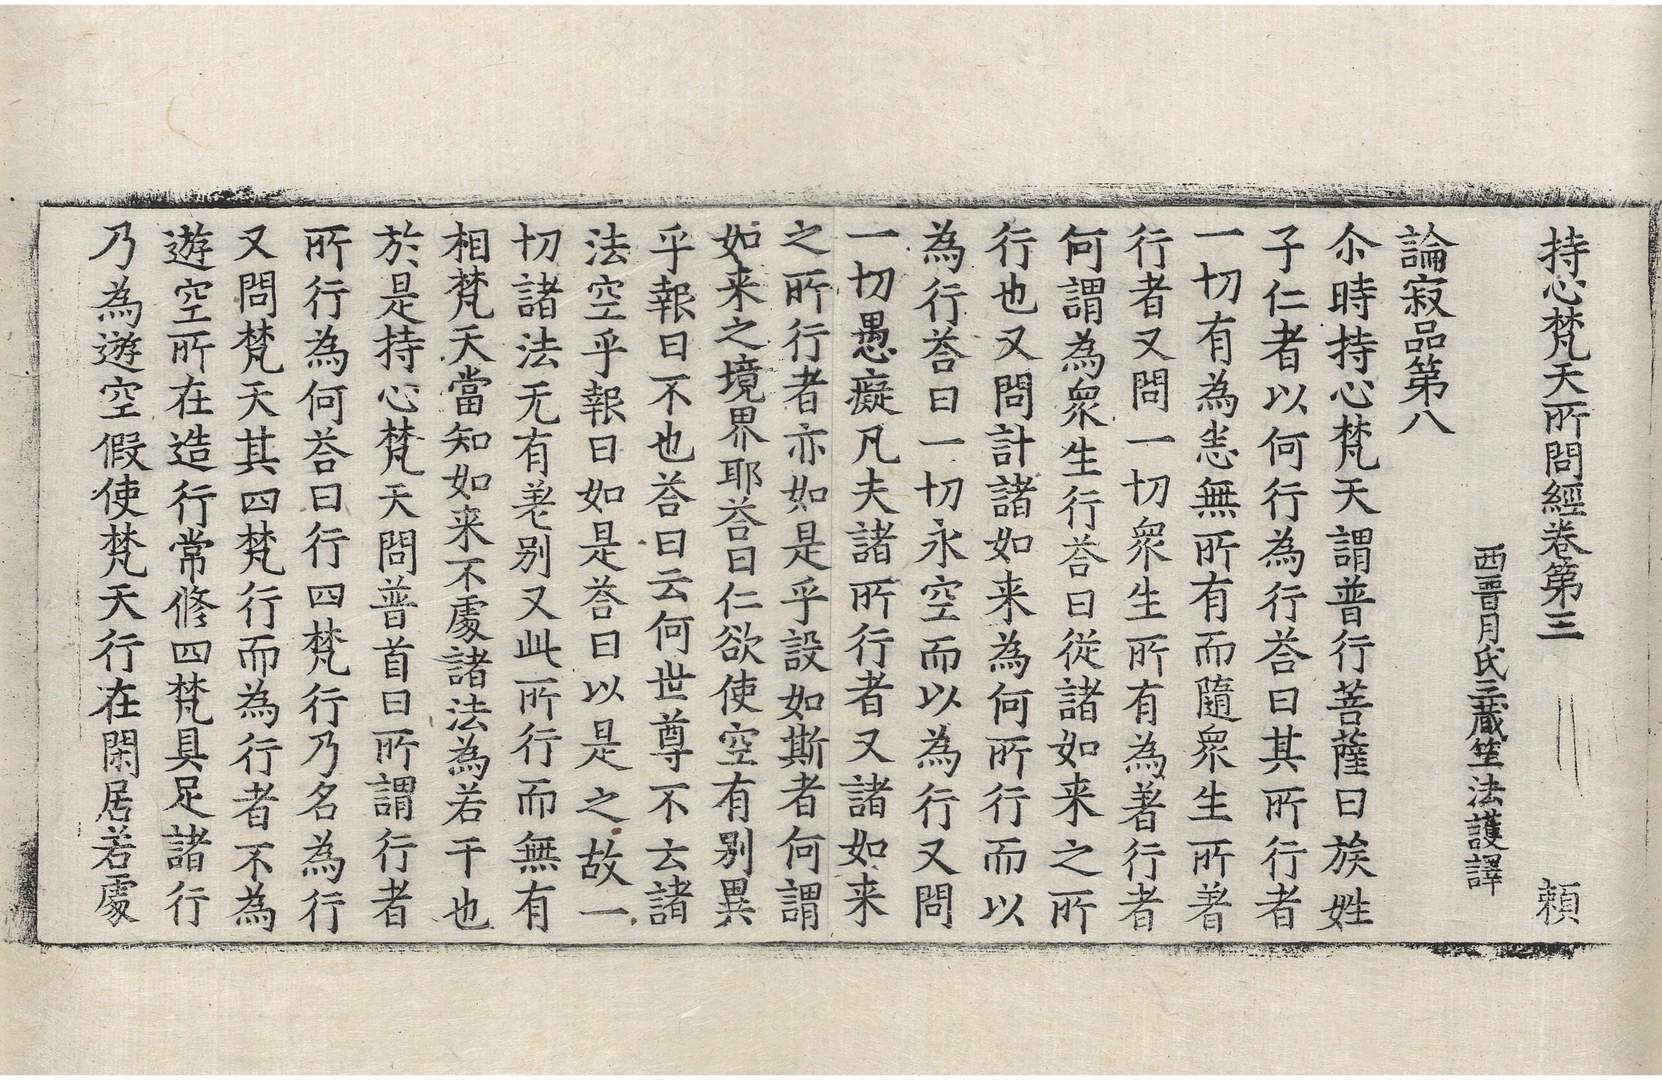 持心梵天所問經卷第三　頼
西晋月氏三藏竺法護譯
論寂品第八
尒時持心梵天謂普行菩薩曰族姓
子仁者以何行為行荅曰其所行者
一切有為恙無所有而隨衆生所著
行者又問一切衆生所有為著行者
何謂為衆生行荅曰從諸如来之所
行也又問計諸如来為何所行而以
為行荅曰一切永空而以為行又問
一切愚癡凡夫諸所行者又諸如来
之所行者亦如是乎設如斯者何謂
如来之境界耶荅曰仁欲使空有别異
乎報曰不也荅曰云何世尊不云諸
法空乎報曰如是荅曰以是之故一
切諸法无有差别又此所行而無有
相梵天當知如来不處諸法為若干也
於是持心梵天問普首曰所謂行者
所行為何荅曰行四梵行乃名為行
又問梵天其四梵行而為行者不為
遊空所在造行常修四梵具足諸行
乃為遊空假使梵天行在閑居若處